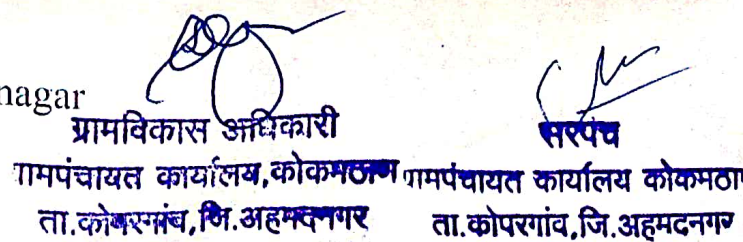 nagar
ग्रामविकास अधिकारी
ग्रामपंचायत कार्यालय,कोकमठाण
ता.कोपरगांव,जि.अहमदनगर
सरपंच
ग्रामपंचायत कार्यालय कोकमठाण
ता.कोपरगांव,जि.अहमदनगर